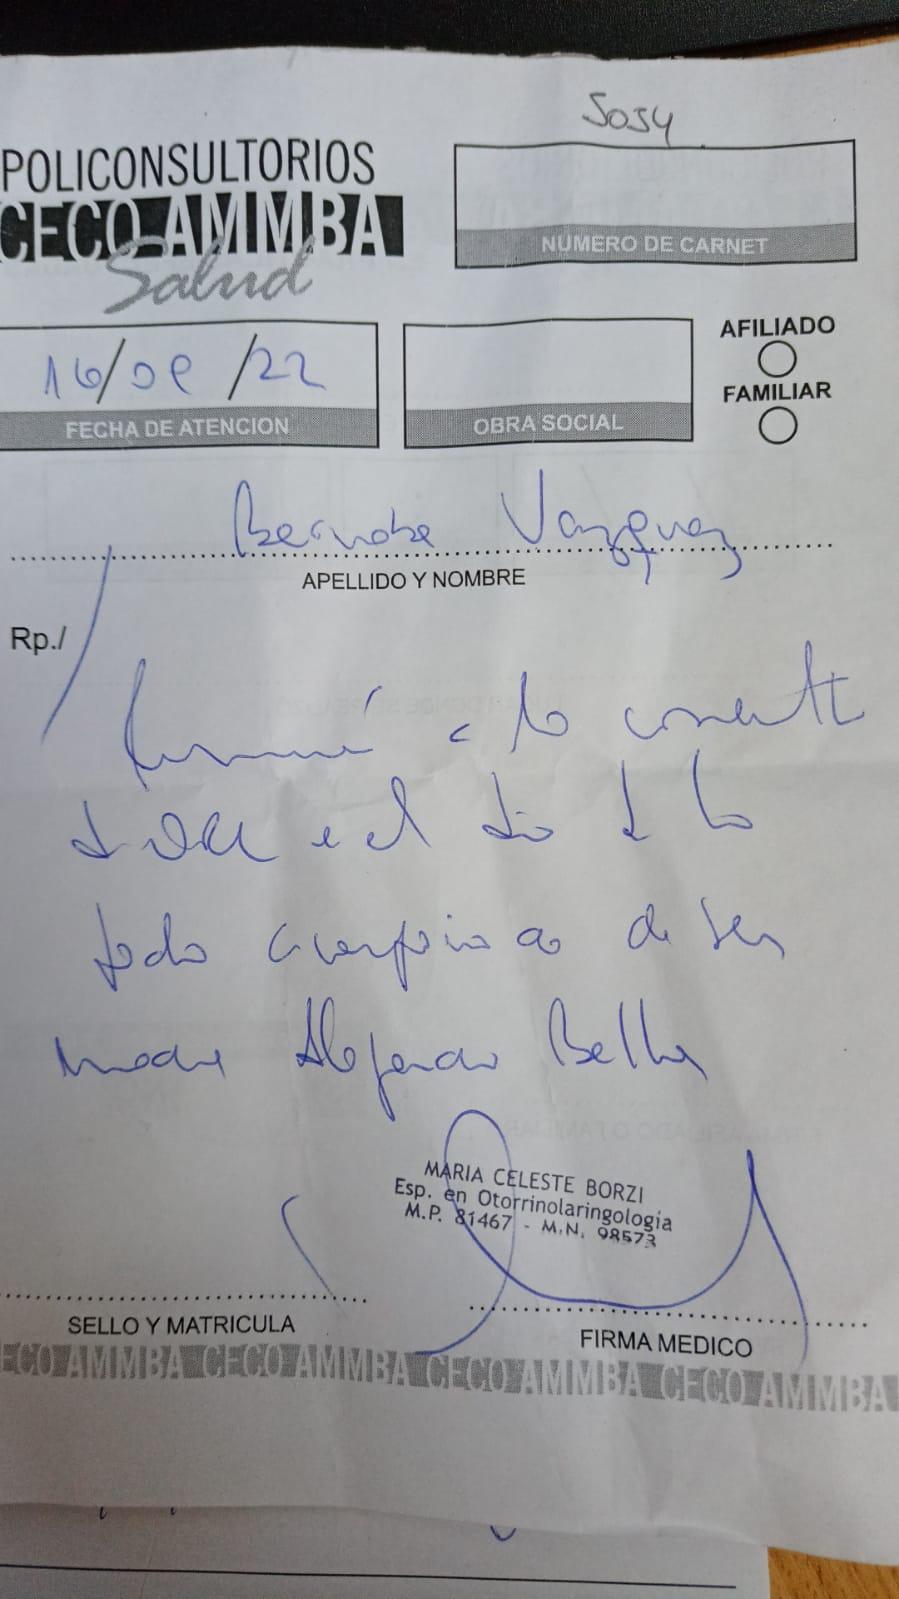 5054
POLICONSULTORIOS
CECO AMMBA
Salud
NUMERO DE CARNET
16/09/22
FECHA DE ATENCION
OBRA SOCIAL
AFILIADO
FAMILIAR
Bernabe Vazquez
APELLIDO Y NOMBRE
Rp./
a la consulta
de ORL el día de la
fecha acompañado de su
madre Alejandra
MARIA CELESTE BORZI
Esp. en Otorrinolaringologia
M.P. 81467 - M.N. 98573
SELLO Y MATRICULA
FIRMA MEDICO
ECO AMMBA CECO AMMBA CECO AMMBA CECO AMMBA